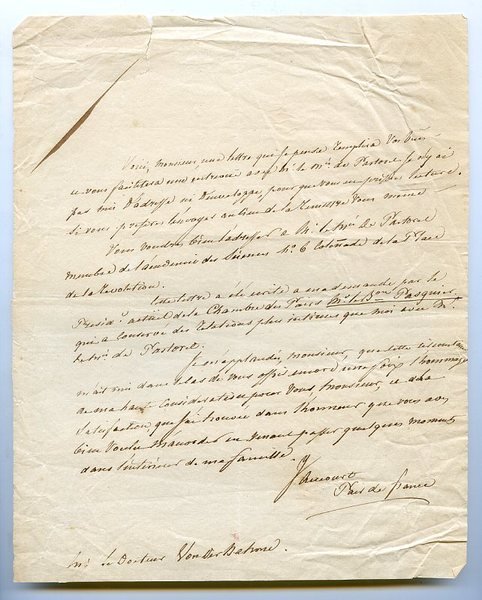 Voici, Monsieur, une lettre que je pense remplira vos vues
et vous facilitera une entrevue avec Mr. le Mis. de Pastoret je n'y ai
pas mis d'adresse ni d'enveloppe, pour que vous en prissiez lecture.
si vous préférez l'envoyer au lieu de la remettre vous même
Vous voudrez bien l'adresser à Mr. le Mis. De Pastoret
membre de l'académie des Sciences No. 6 Colonade de la Place
de la Révolution.
Cette lettre a été écrite à ma demande par le
Présidt. actuel de la Chambre des Pairs Mr. le Bon. Pasquier,
qui a conservé des relations plus intimes que moi avec Mr.
le Mis. de Pastoret.
Je m'applaudis, Monsieur, que cette
m'ait mis dans le cas de vous offrir encore une fois l'hommage
de ma haute considération pour vous, Monsieur, et de la
satisfaction que j'ai trouvée dans l'honneur que vous avez
bien voulu m'accorder en venant passer quelques moments
dans l'intérieur de ma famille.
Jaucourt
Pair de france
Mr. le Docteur